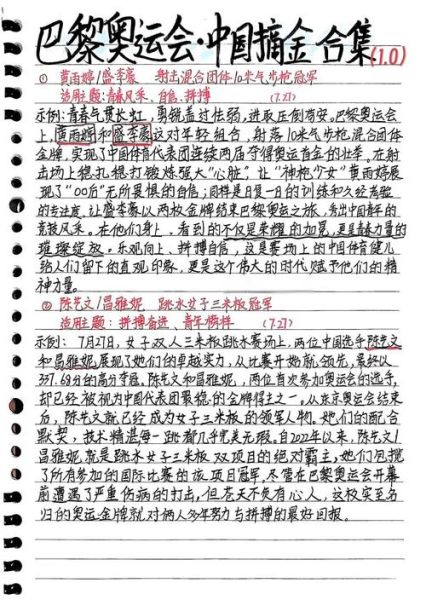 巴黎奥运会·中国摘金合集(1.0)
① 黄雨婷/盛李豪 射击混合团体10米气步枪冠军
适用主题:青春风采、自信、拼搏 (7.27)
示例:青春气贯长虹,勇锐盖过怯弱,进取压倒苟安。巴黎奥运会
上,黄雨婷和盛李豪这对年轻组合,射落10米气步枪混合团体
金牌,实现了中国体育代表团连续两届夺得奥运首金的壮举。在射
击场上稳扎稳打锻炼强大“心脏”,让“神枪少女”黄雨婷展
现了“00后”无所畏惧的自信;同样是日复一日的训练和久经考验
的专注度,让盛李豪以两枚金牌结束巴黎奥运之旅,秀出中国青年的
竞技风采。在他们身上,看到的不仅是荣耀的加冕,更是青春力量的
璀璨绽放。乐观向上、拼搏自信,这是赛场上的中国体育健儿
给人们留下的直观印象,更是这个伟大的时代赋予他们的精
神力量。
② 陈艺文/昌雅妮 跳水女子三米板冠军
适用主题:拼搏奋进、青年榜样 (7.27)
示例:7月27日,女子双人三米板跳水赛场上,两位中国选手陈艺文
和昌雅妮展现了她们的卓越实力,从比赛开始就领先,最终以
337.68分的高分夺冠。陈艺文和昌雅妮,两位首次参加奥运的选手,
却已经被视为中国代表团最稳的金牌得主之一。从东京奥运会结束
后,陈艺文就已经成为女子三米板的领军人物。她们的配合
默契,技术精湛每一跳都几乎完美无瑕。自2022年以来,陈艺文/
昌雅妮就是跳水女子三米板双项目的绝对霸主,她们包揽
了所有参加的国际比赛的该项目冠军,尽管在巴黎奥运会开幕
前遭遇了严重伤病的打击,但苍天不负有心人,这枚实至名
归的奥运金牌就对俩人多年努力与拼搏的最好回报。